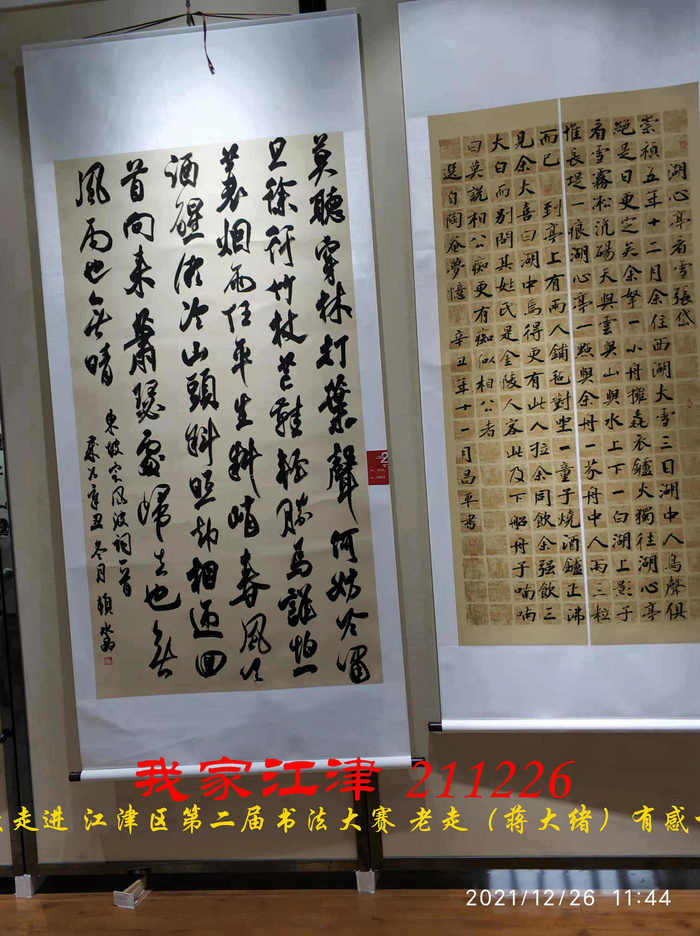 莫聽穿林打葉聲何妨吟嘯
且徐行竹杖芒鞋輕勝馬誰怕一
蓑烟雨任平生料峭春風吹
酒醒微冷山頭斜照却相迎回
首向來蕭瑟處歸去也無
風雨也無晴
東坡定風波詞一首
歲在辛丑冬月
湖心亭看雪張岱
崇禎五年十二月余住西湖大雪三日湖中人鳥聲俱
絕是日更定矣余拏一小舟擁毳衣鑪火獨往湖心亭
看雪霧凇沆碭天與雲與山與水上下一白湖上影子
惟長堤一痕湖心亭一點與余舟一芥舟中人兩三粒
而已 到亭上有兩人鋪氈對坐一童子燒酒鑪正沸
見余大喜曰湖中焉得更有此人拉余同飲余强飲三
大白而別問其姓氏是金陵人客此及下船舟子喃喃
曰莫說相公癡更有癡似相公者
選自陶菴夢憶 辛丑年十一月昌平書
我家江津 211226
走进 江津区第二届书法大赛 老走（蒋大绪）有感
2021/12/26 11:44